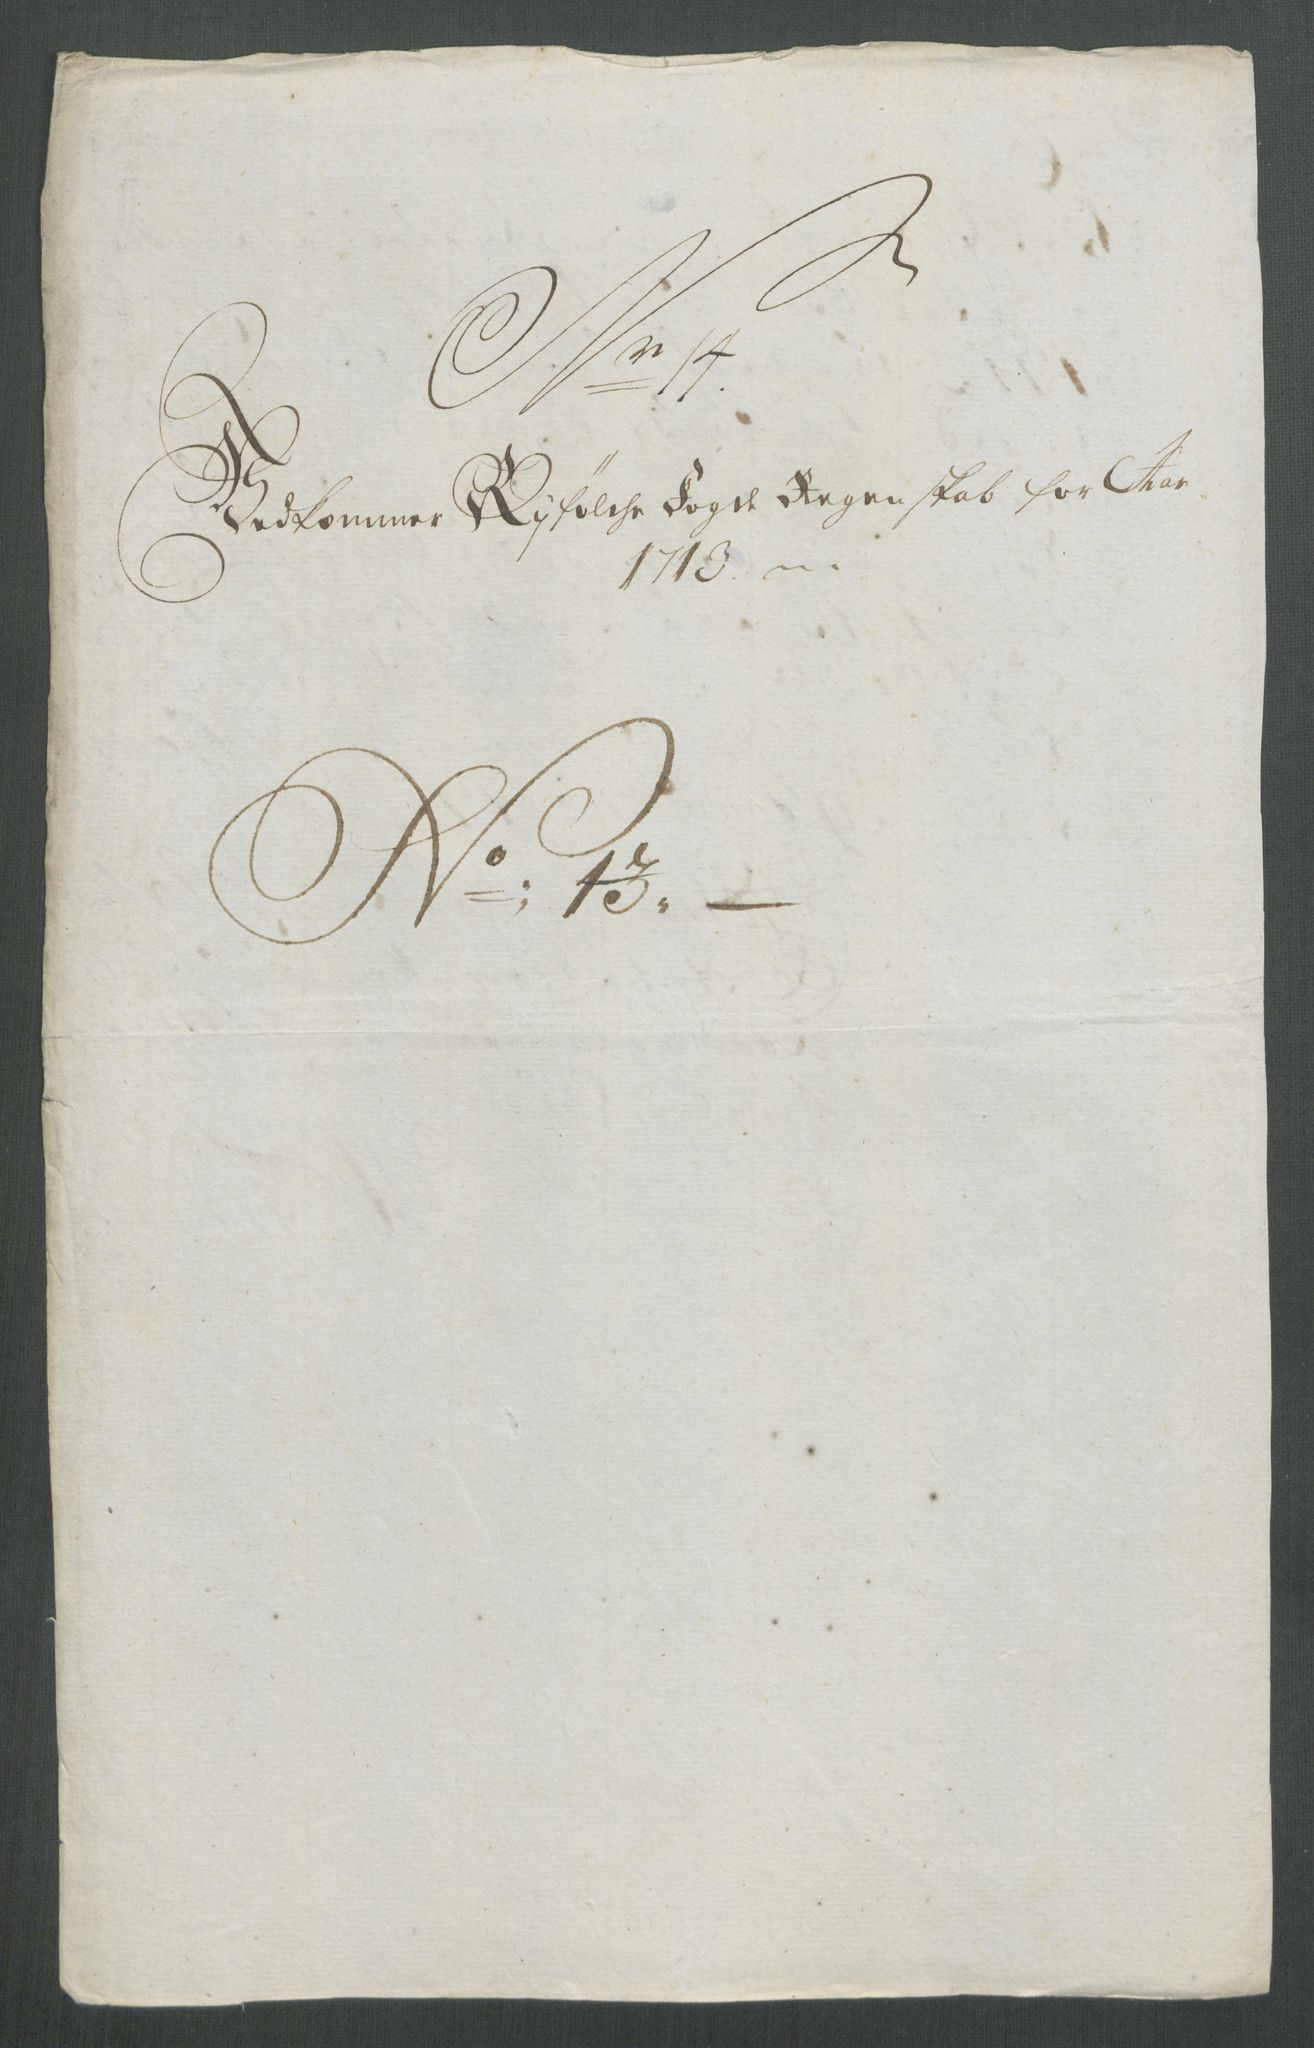 Nr 14.
Vedkommer Ryfölche Fogde Regenskab for Aar
1713.
No: 13.